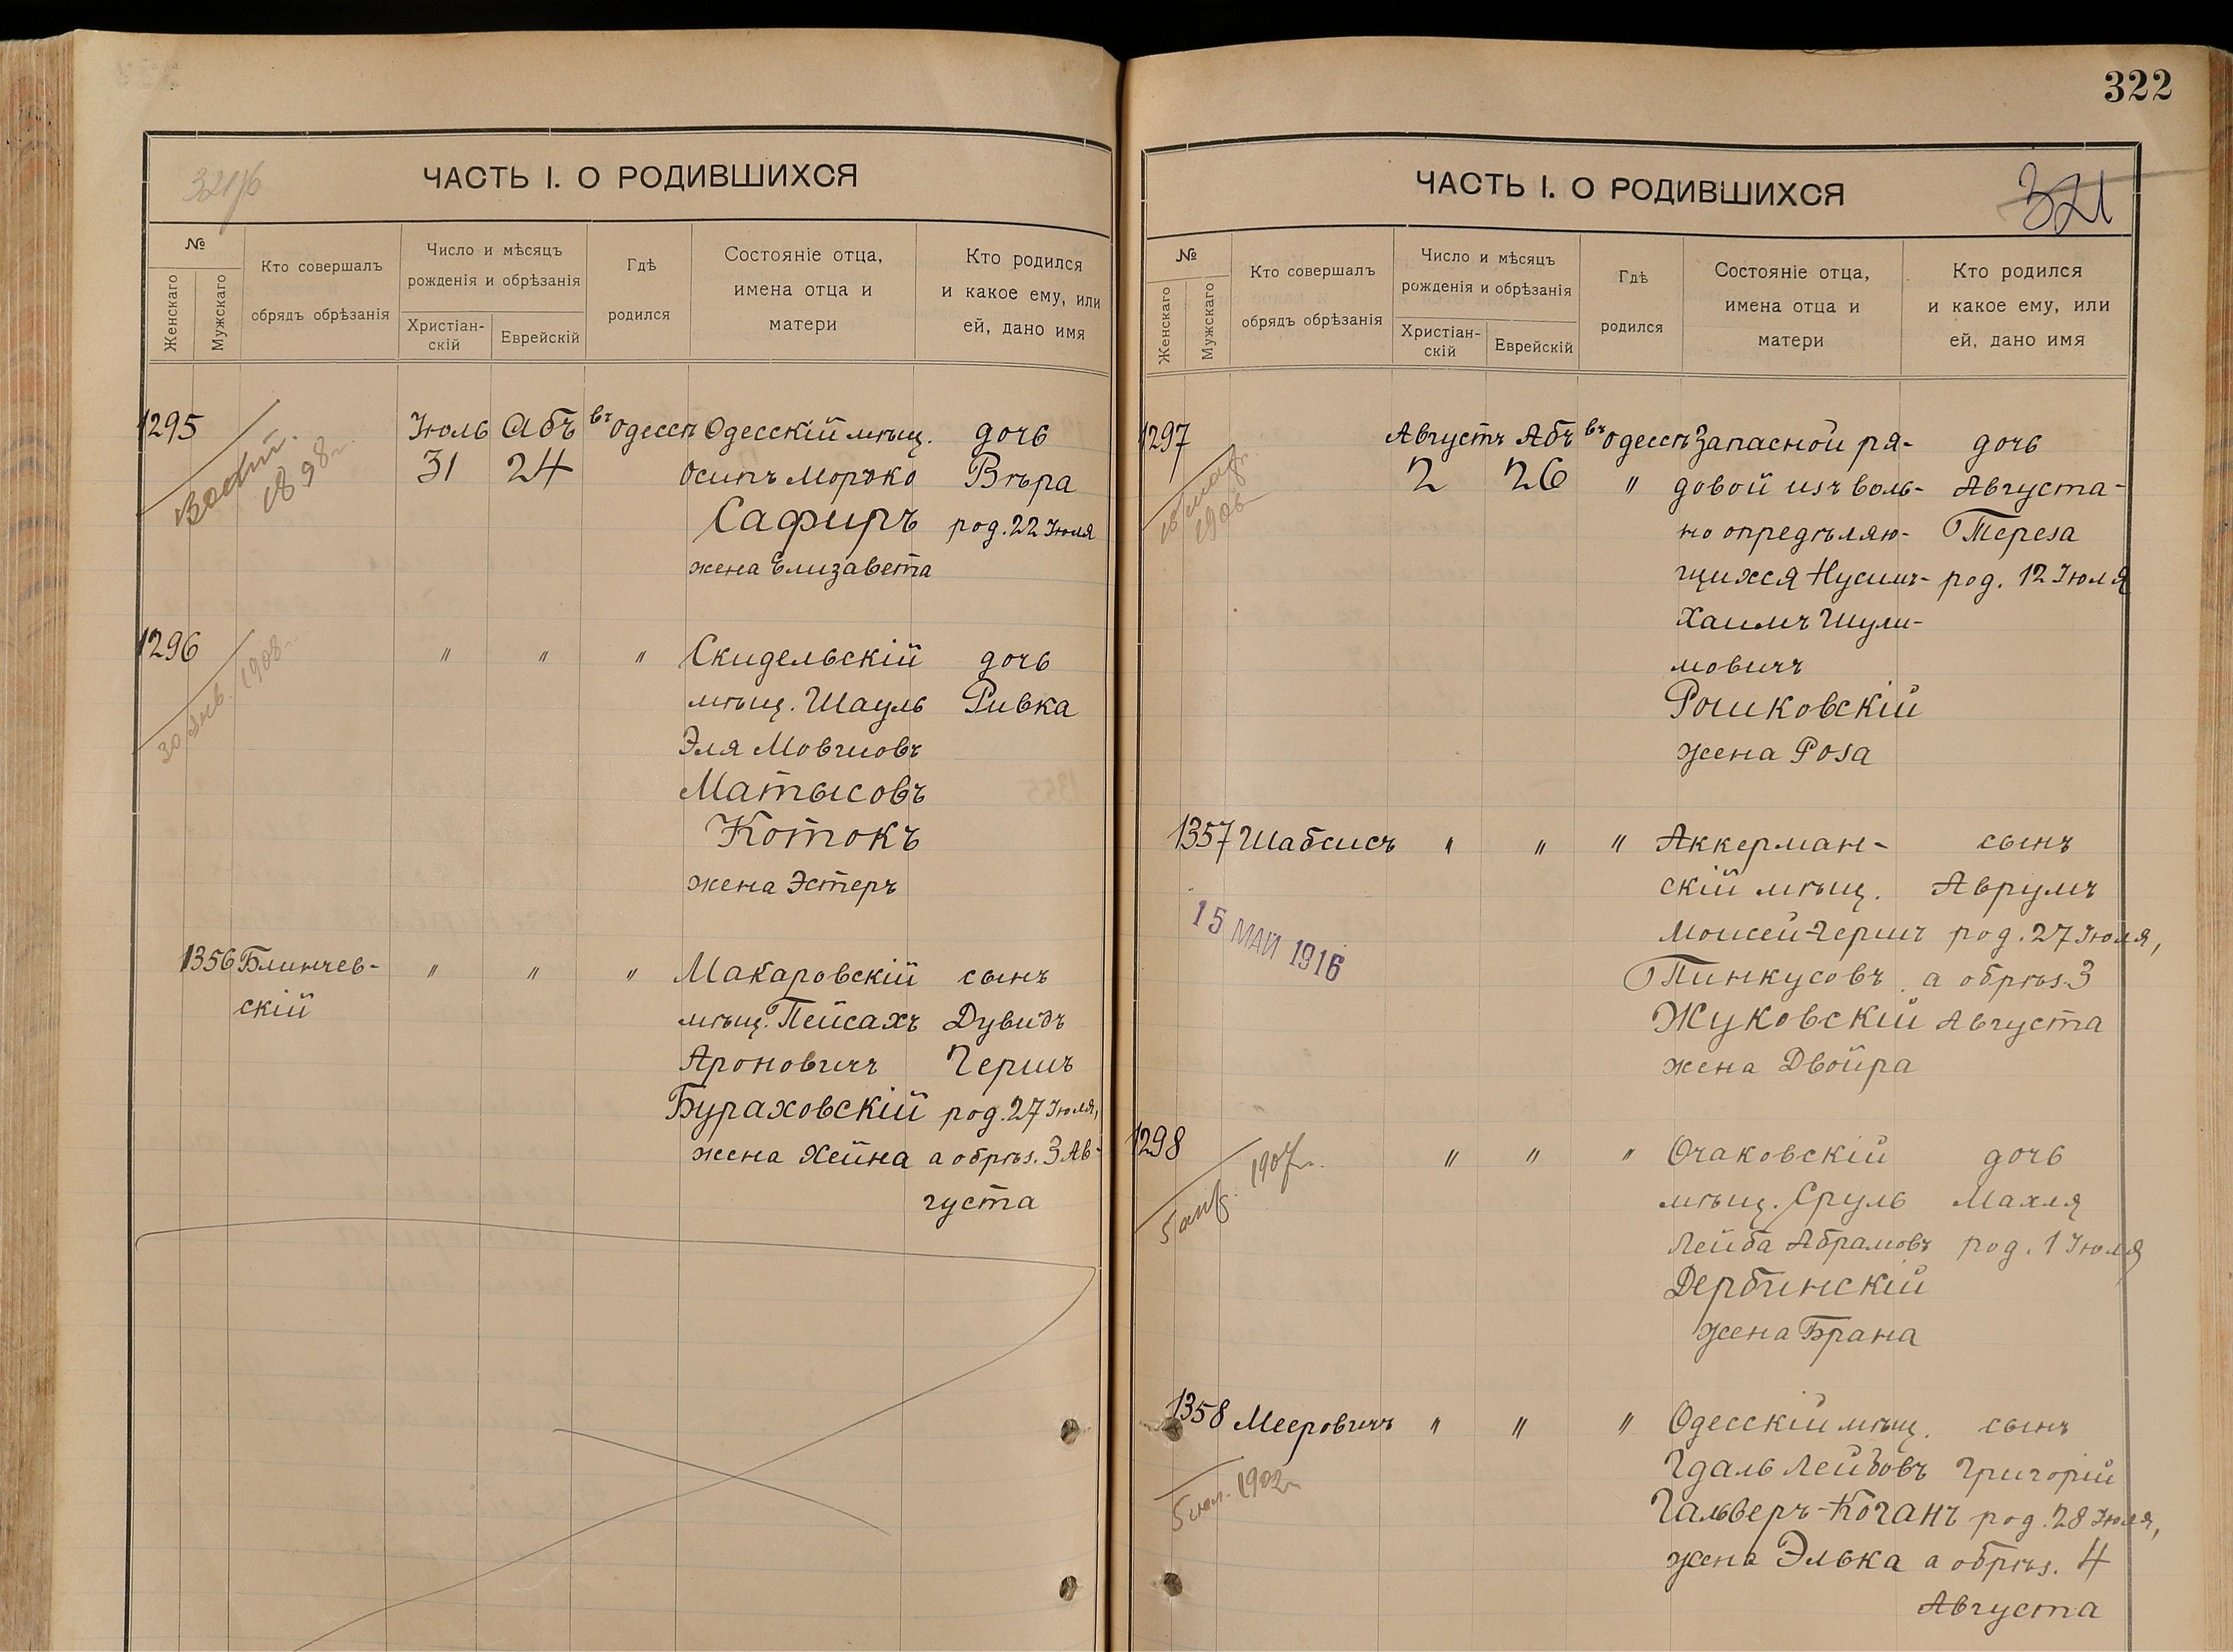 322
321/б
ЧАСТЬ I. О РОДИВШИХСЯ
№
Женскаго
Мужскаго
Кто совершалъ
обрядъ обрѣзанія
Число и мѣсяцъ
рожденія и обрѣзанія
Христіан-
скій
Еврейскій
Гдѣ
родился
Состояніе отца,
имена отца и
матери
Кто родился
и какое ему, или
ей, дано имя
1295 Іюль Абъ въ Одессѣ Одесскій мѣщ. дочь
31 24 Осипъ Мордко Вѣра
Сафиръ род. 22 Іюля
жена Елизавета
1898 г.
1296 " " " Скидельскій дочь
мѣщ. Шауль Ривка
Эля Мовшовъ
Матысовъ
Котокъ
жена Эстеръ
30 янв. 1908 г.
1356 Блинчев- " " " Макаровскій сынъ
скій мѣщ. Пейсахъ Дувидъ
Ароновичъ Гершъ
Бураховскій род. 27 Іюля,
жена Хейна а обрѣз. 3 Ав-
густа
321
ЧАСТЬ I. О РОДИВШИХСЯ
№
Женскаго
Мужскаго
Кто совершалъ
обрядъ обрѣзанія
Число и мѣсяцъ
рожденія и обрѣзанія
Христіан-
скій
Еврейскій
Гдѣ
родился
Состояніе отца,
имена отца и
матери
Кто родился
и какое ему, или
ей, дано имя
1297 Августъ Абъ въ Одессѣ Запасной ря- дочь
2 26 " довой изъ воль- Августа-
но опредѣляю- Тереза
щихся Нусимъ- род. 12 Іюля
Хаимъ Шули-
мовичъ
Рошковскій
жена Роза
1906
1357 Шабсисъ " " " Аккерман- сынъ
скій мѣщ. Аврумъ
Моисей-Гершъ род. 27 Іюля,
Пинкусовъ а обрѣз. 3
Жуковскій Августа
жена Двойра
15 МАЙ 1916
1298 " " " Очаковскій дочь
мѣщ. Сруль Махля
Лейба Абрамовъ род. 1 Іюля
Дербинскій
жена Брана
1907 г.
1358 Мееровичъ " " " Одесскій мѣщ. сынъ
Гдаль Лейбовъ Григорій
Гальверъ-Коганъ род. 28 Іюля,
жена Элька а обрѣз. 4
Августа
1902 г.